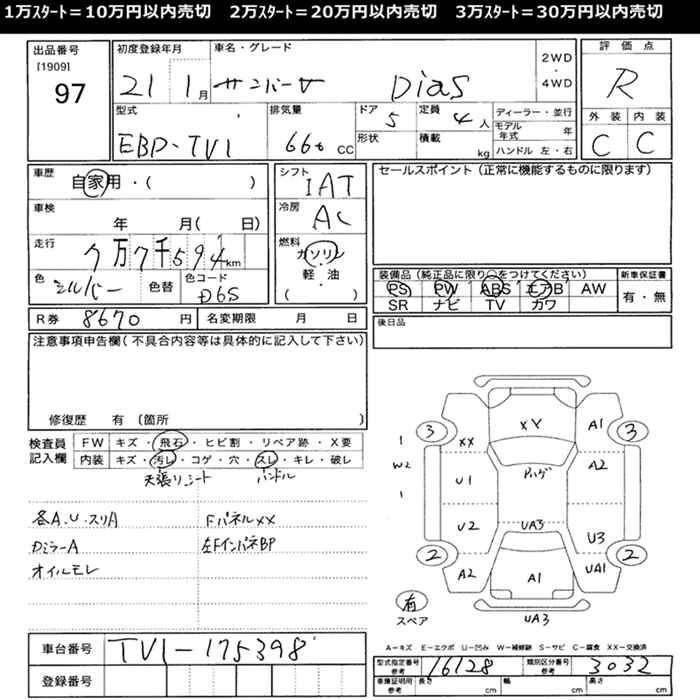 1万スタート=10万円以内売切 2万スタート=20万円以内売切 3万スタート=30万円以内売切
出品番号 [1909] 97
初度登録年月 21 1月
車名・グレード サンバーV Dias
2WD・4WD
評価点 R
外装 C 内装 C
型式 EBD-TV1
排気量 660 cc
ドア 5 定員 4人
形状 積載 kg
ディーラー・並行
モデル年式 年
ハンドル 左・右
車歴 自家用・( )
シフト IAT
セールスポイント(正常に機能するものに限ります)
車検 年 月( 日)
冷房 AC
走行 7万7千594km
燃料 ガソリン・軽・油 ( )
色 シルバー 色替 色コード D6S
装備品(純正品に限り○をつけてください) 新車保証書
PS PW ABS エアB AW 有・無
SR ナビ TV カワ
R券 8670円 名変期限 月 日
後日品
注意事項申告欄(不具合内容等は具体的に記入して下さい)
修復歴 有〔箇所
検査員記入欄 FW キズ・飛石・ヒビ割・リペア跡・X要
内装 キズ・汚レ・コゲ・穴・スレ・キレ・破レ
天張リシート ハンドル
各A.U.スリA FパネルXX
DミラーA 左FインパネBP
オイルモレ
XY
3 A1 3
XX
1 W2 1
U1 ハゲ A2
U2 UA3 U3
2 A2 A1 UA1 2
有 スペア UA3
A-キズ E-エクボ U-凹み W-補修跡 S-サビ C-腐食 XX-交換済
車台番号 TV1-175398
型式指定番号 参考 16128 類別区分番号 参考 3032
登録番号
車庫証明用 参考 長さ cm 幅 cm 高さ cm